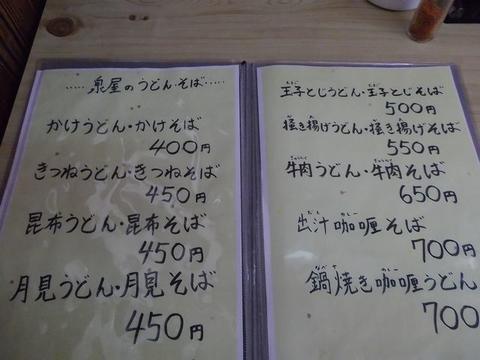 ……泉屋のうどん・そば……
かけうどん・かけそば
400円
きつねうどん・きつねそば
450円
昆布うどん・昆布そば
450円
月見うどん・月見そば
450円
玉子とじうどん・玉子とじそば
500円
掻き揚げうどん・掻き揚げそば
550円
牛肉うどん・牛肉そば
650円
出汁咖喱そば
700円
鍋焼き咖喱うどん
700